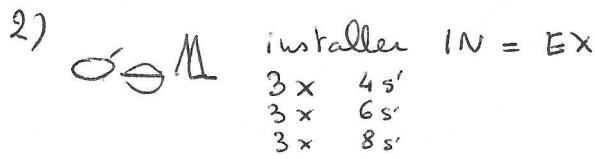 2)
installer IN = EX
3 x 4 s'
3 x 6 s'
3 x 8 s'